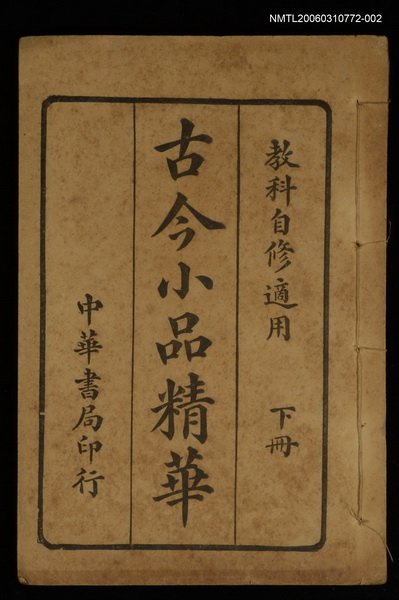 NMTL20060310772-002
教科自修適用 下冊
古今小品精華
中華書局印行